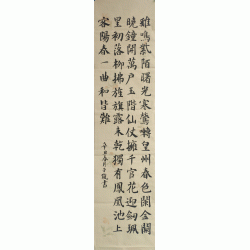 雞鳴紫陌曙光寒鶯轉皇州春色闌金闕
曉鐘開萬戶玉階仙仗擁千官花迎劍珮
星初落柳拂旌旗露未乾獨有鳳凰池上
客陽春一曲和皆難
書